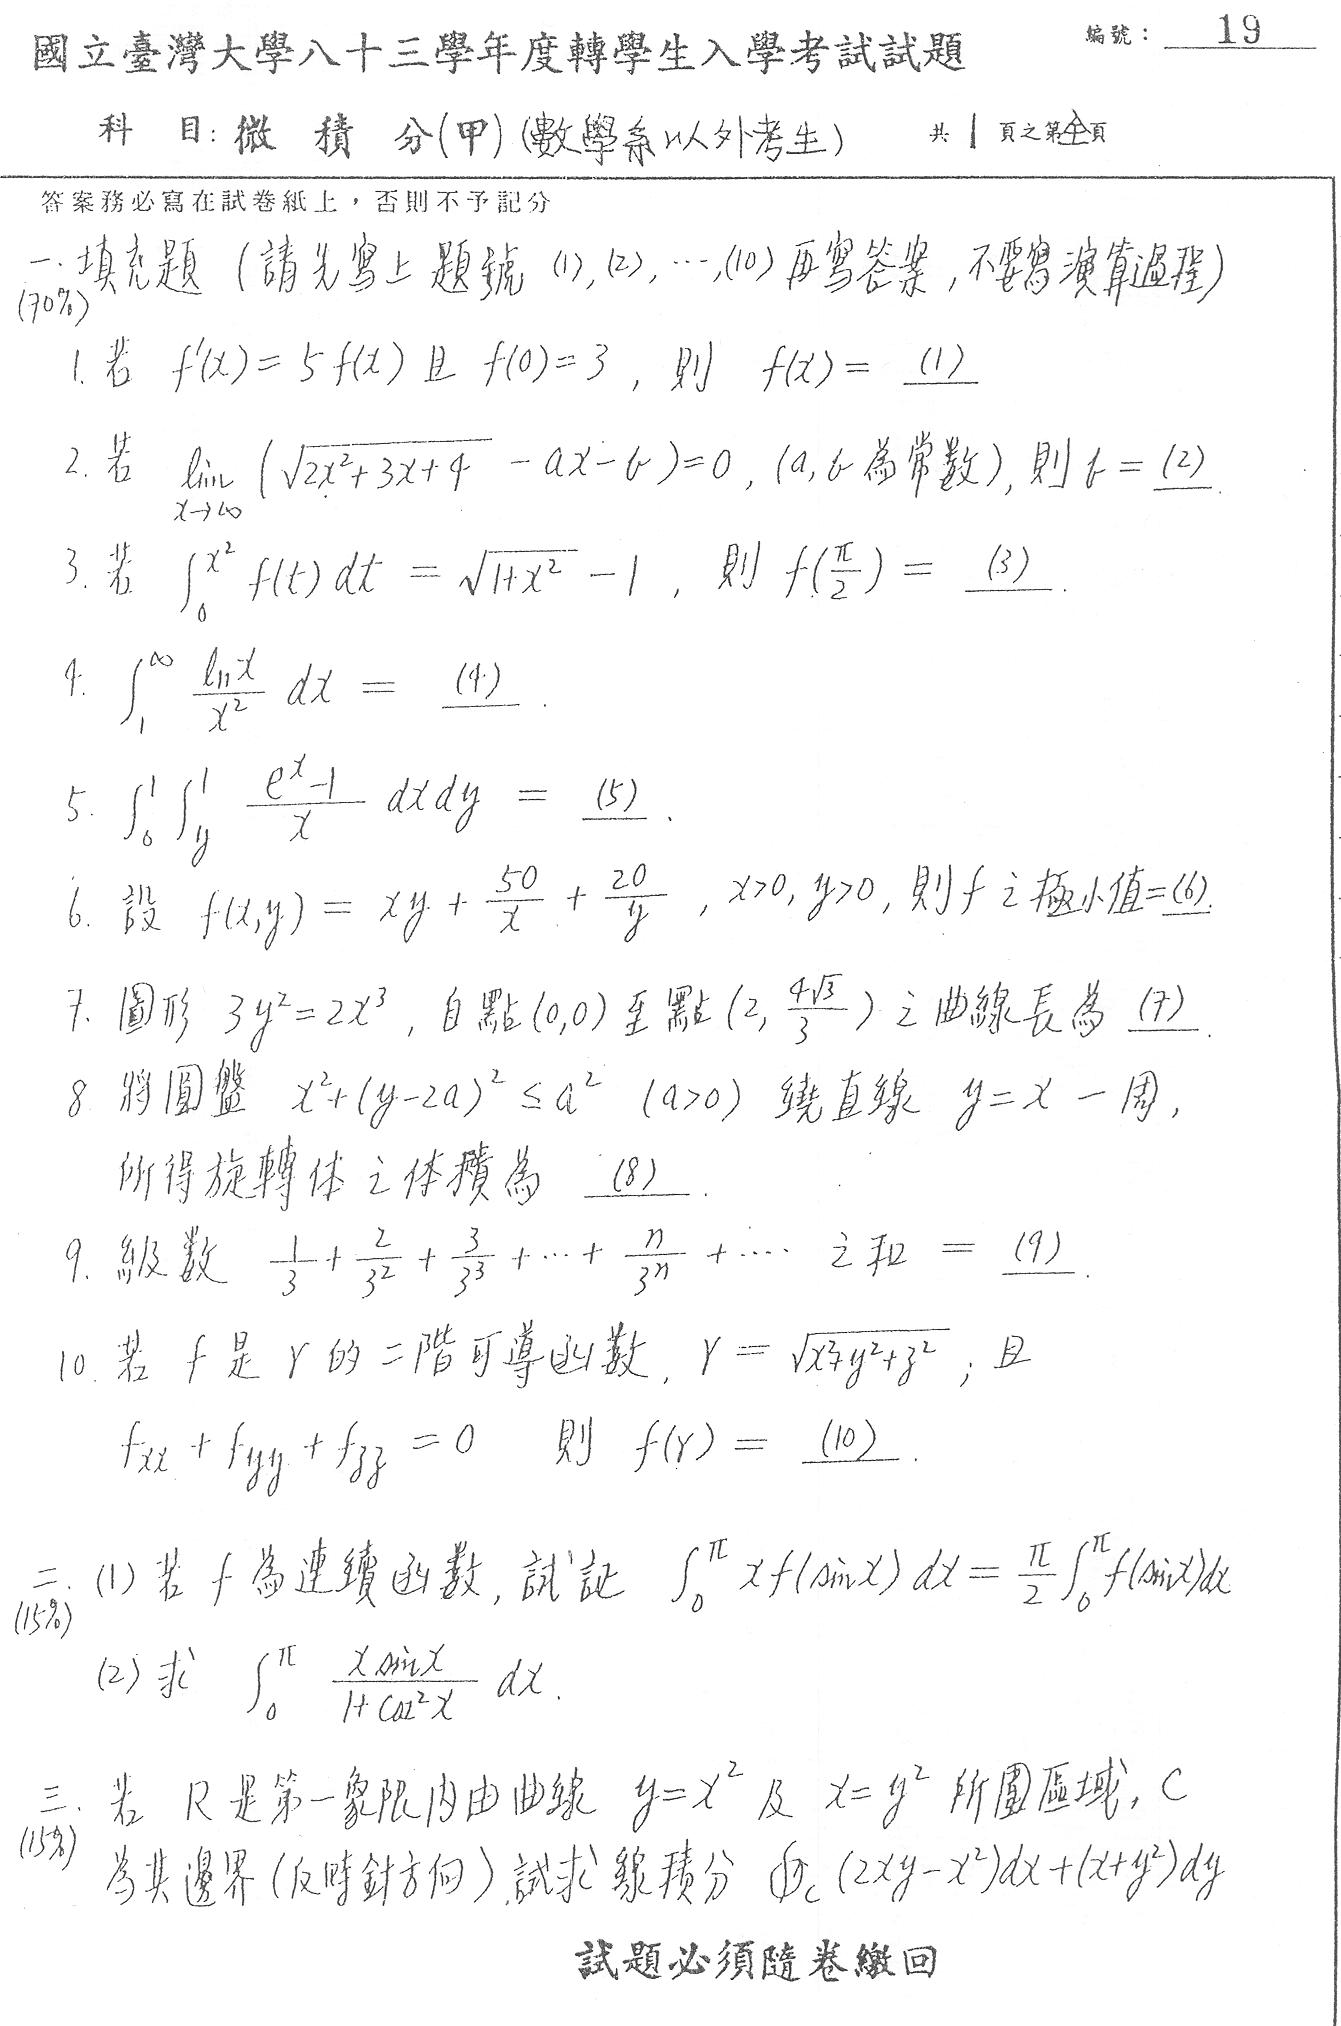 編號：19
國立臺灣大學八十三學年度轉學生入學考試試題
科 目：微 積 分(甲)(數學系以外考生) 共 1 頁之第全頁
答案務必寫在試卷紙上，否則不予記分
一. 填充題 (請先寫上題號 (1), (2), …, (10) 再寫答案, 不要寫演算過程)
(70%)
1. 若 f'(x) = 5 f(x) 且 f(0) = 3 , 則 f(x) = (1)
2. 若 lim x→∞ (√(2x²+3x+4) - ax - b) = 0 , (a, b 為常数), 則 b = (2) .
3. 若 ∫₀^{x²} f(t) dt = √(1+x²) - 1 , 則 f(π/2) = (3) .
4. ∫₁^∞ ln x / x² dx = (4) .
5. ∫₀¹ ∫_y¹ (e^x - 1)/x dx dy = (5) .
6. 設 f(x,y) = xy + 50/x + 20/y , x>0, y>0, 則 f 之極小值= (6) .
7. 圖形 3y² = 2x³ , 自點(0,0) 至點(2, 4√3/3) 之曲線長為 (7) .
8 將圓盤 x²+(y-2a)² ≤ a² (a>0) 繞直線 y = x 一周 ,
所得旋轉体之体積為 (8) .
9. 級数 1/3 + 2/3² + 3/3³ + … + n/3ⁿ + …. 之和 = (9) .
10. 若 f 是 r 的二階可導函数, r = √(x²+y²+z²) ; 且
f_xx + f_yy + f_zz = 0 則 f(r) = (10) .
二. (1) 若 f 為連續函数, 試証 ∫₀^π x f(sin x) dx = π/2 ∫₀^π f(sin x) dx
(15%)
(2) 求 ∫₀^π x sin x / (1+ cos² x) dx .
三. 若 R 是第一象限內由曲線 y = x² 及 x = y² 所圍區域, C
(15%)
為其邊界 (反時針方向). 試求線積分 ∮_C (2xy - x²)dx + (x+y²)dy
試題必須隨卷繳回